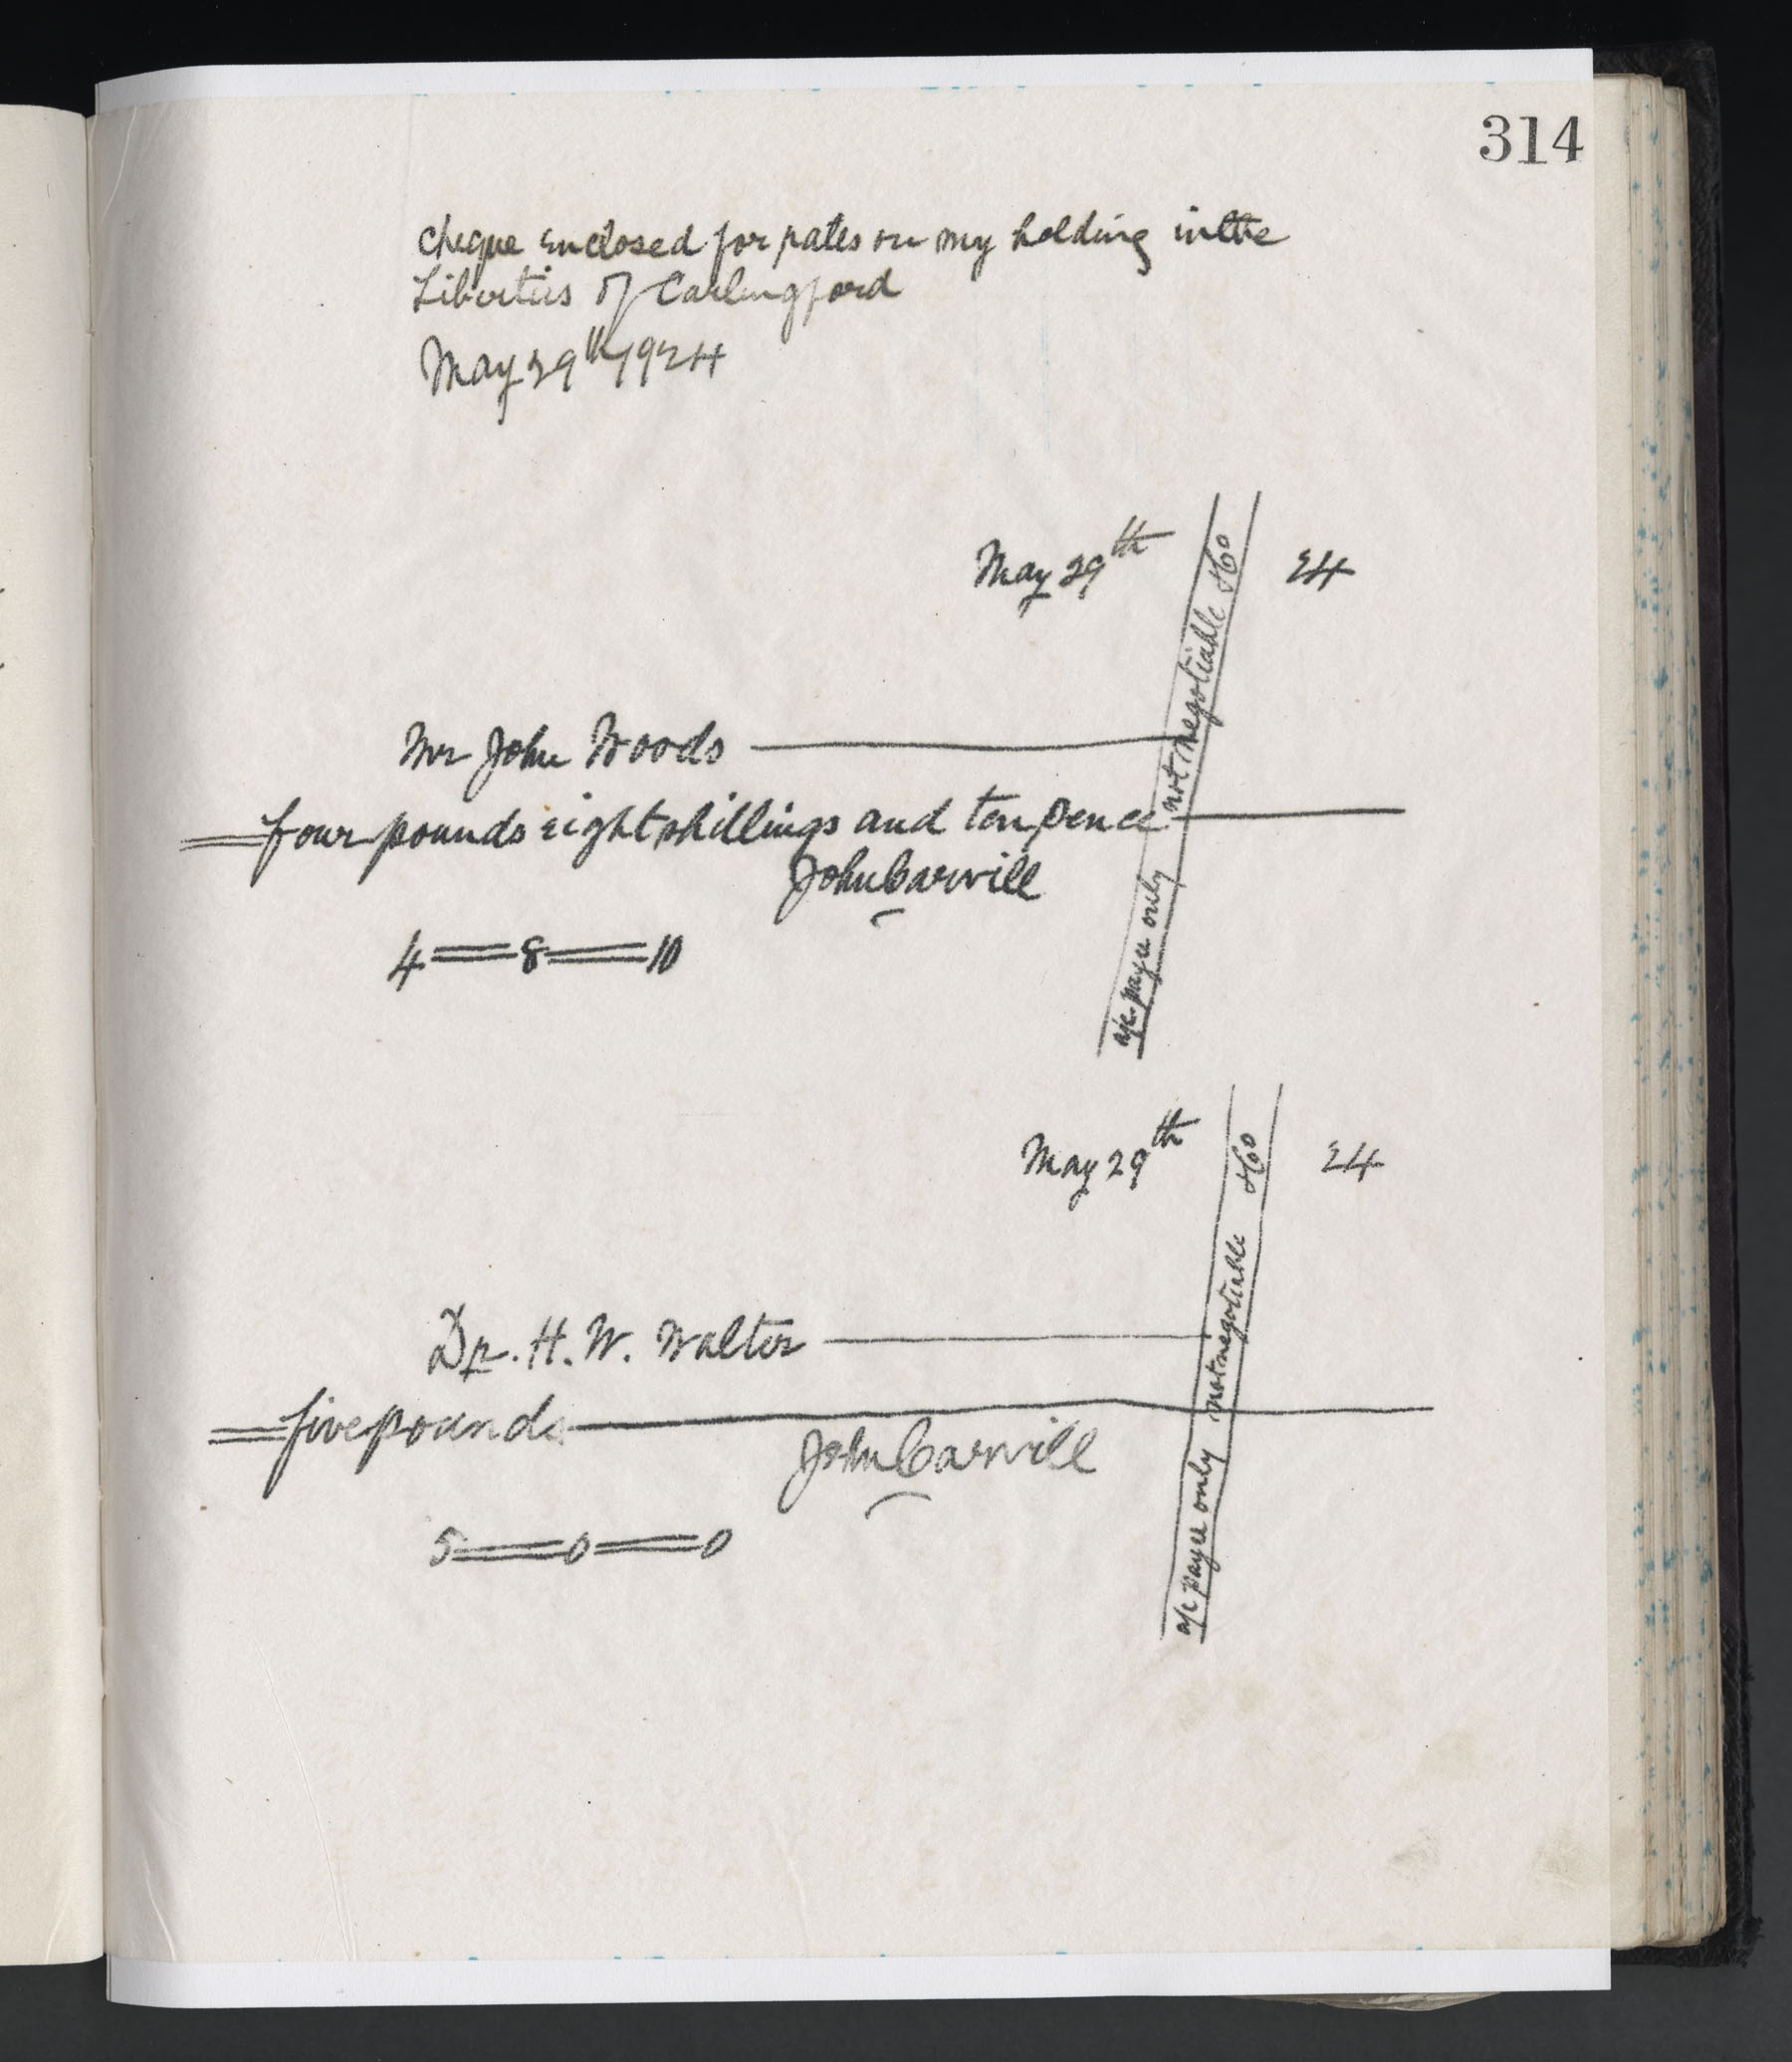 314
Cheque Enclosed for rates on my holding in the
Liberties of Carlingford
May 29th 1924
May 29th 24
Mr John Woods
four pounds eight shillings and ten pence
John Carvill
4 = 8 = 10
a/c payee only not negotiable & Co
May 29th 24
Dr. H. W. Walter
five pounds
John Carvill
5 = 0 = 0
a/c payee only not negotiable & Co